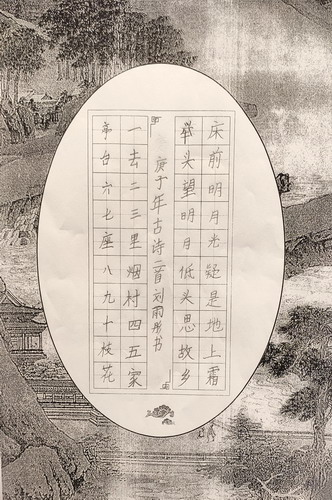 床前明月光疑是地上霜
举头望明月低头思故乡
庚子年古诗二首刘雨彤书
一去二三里烟村四五家
亭台六七座八九十枝花